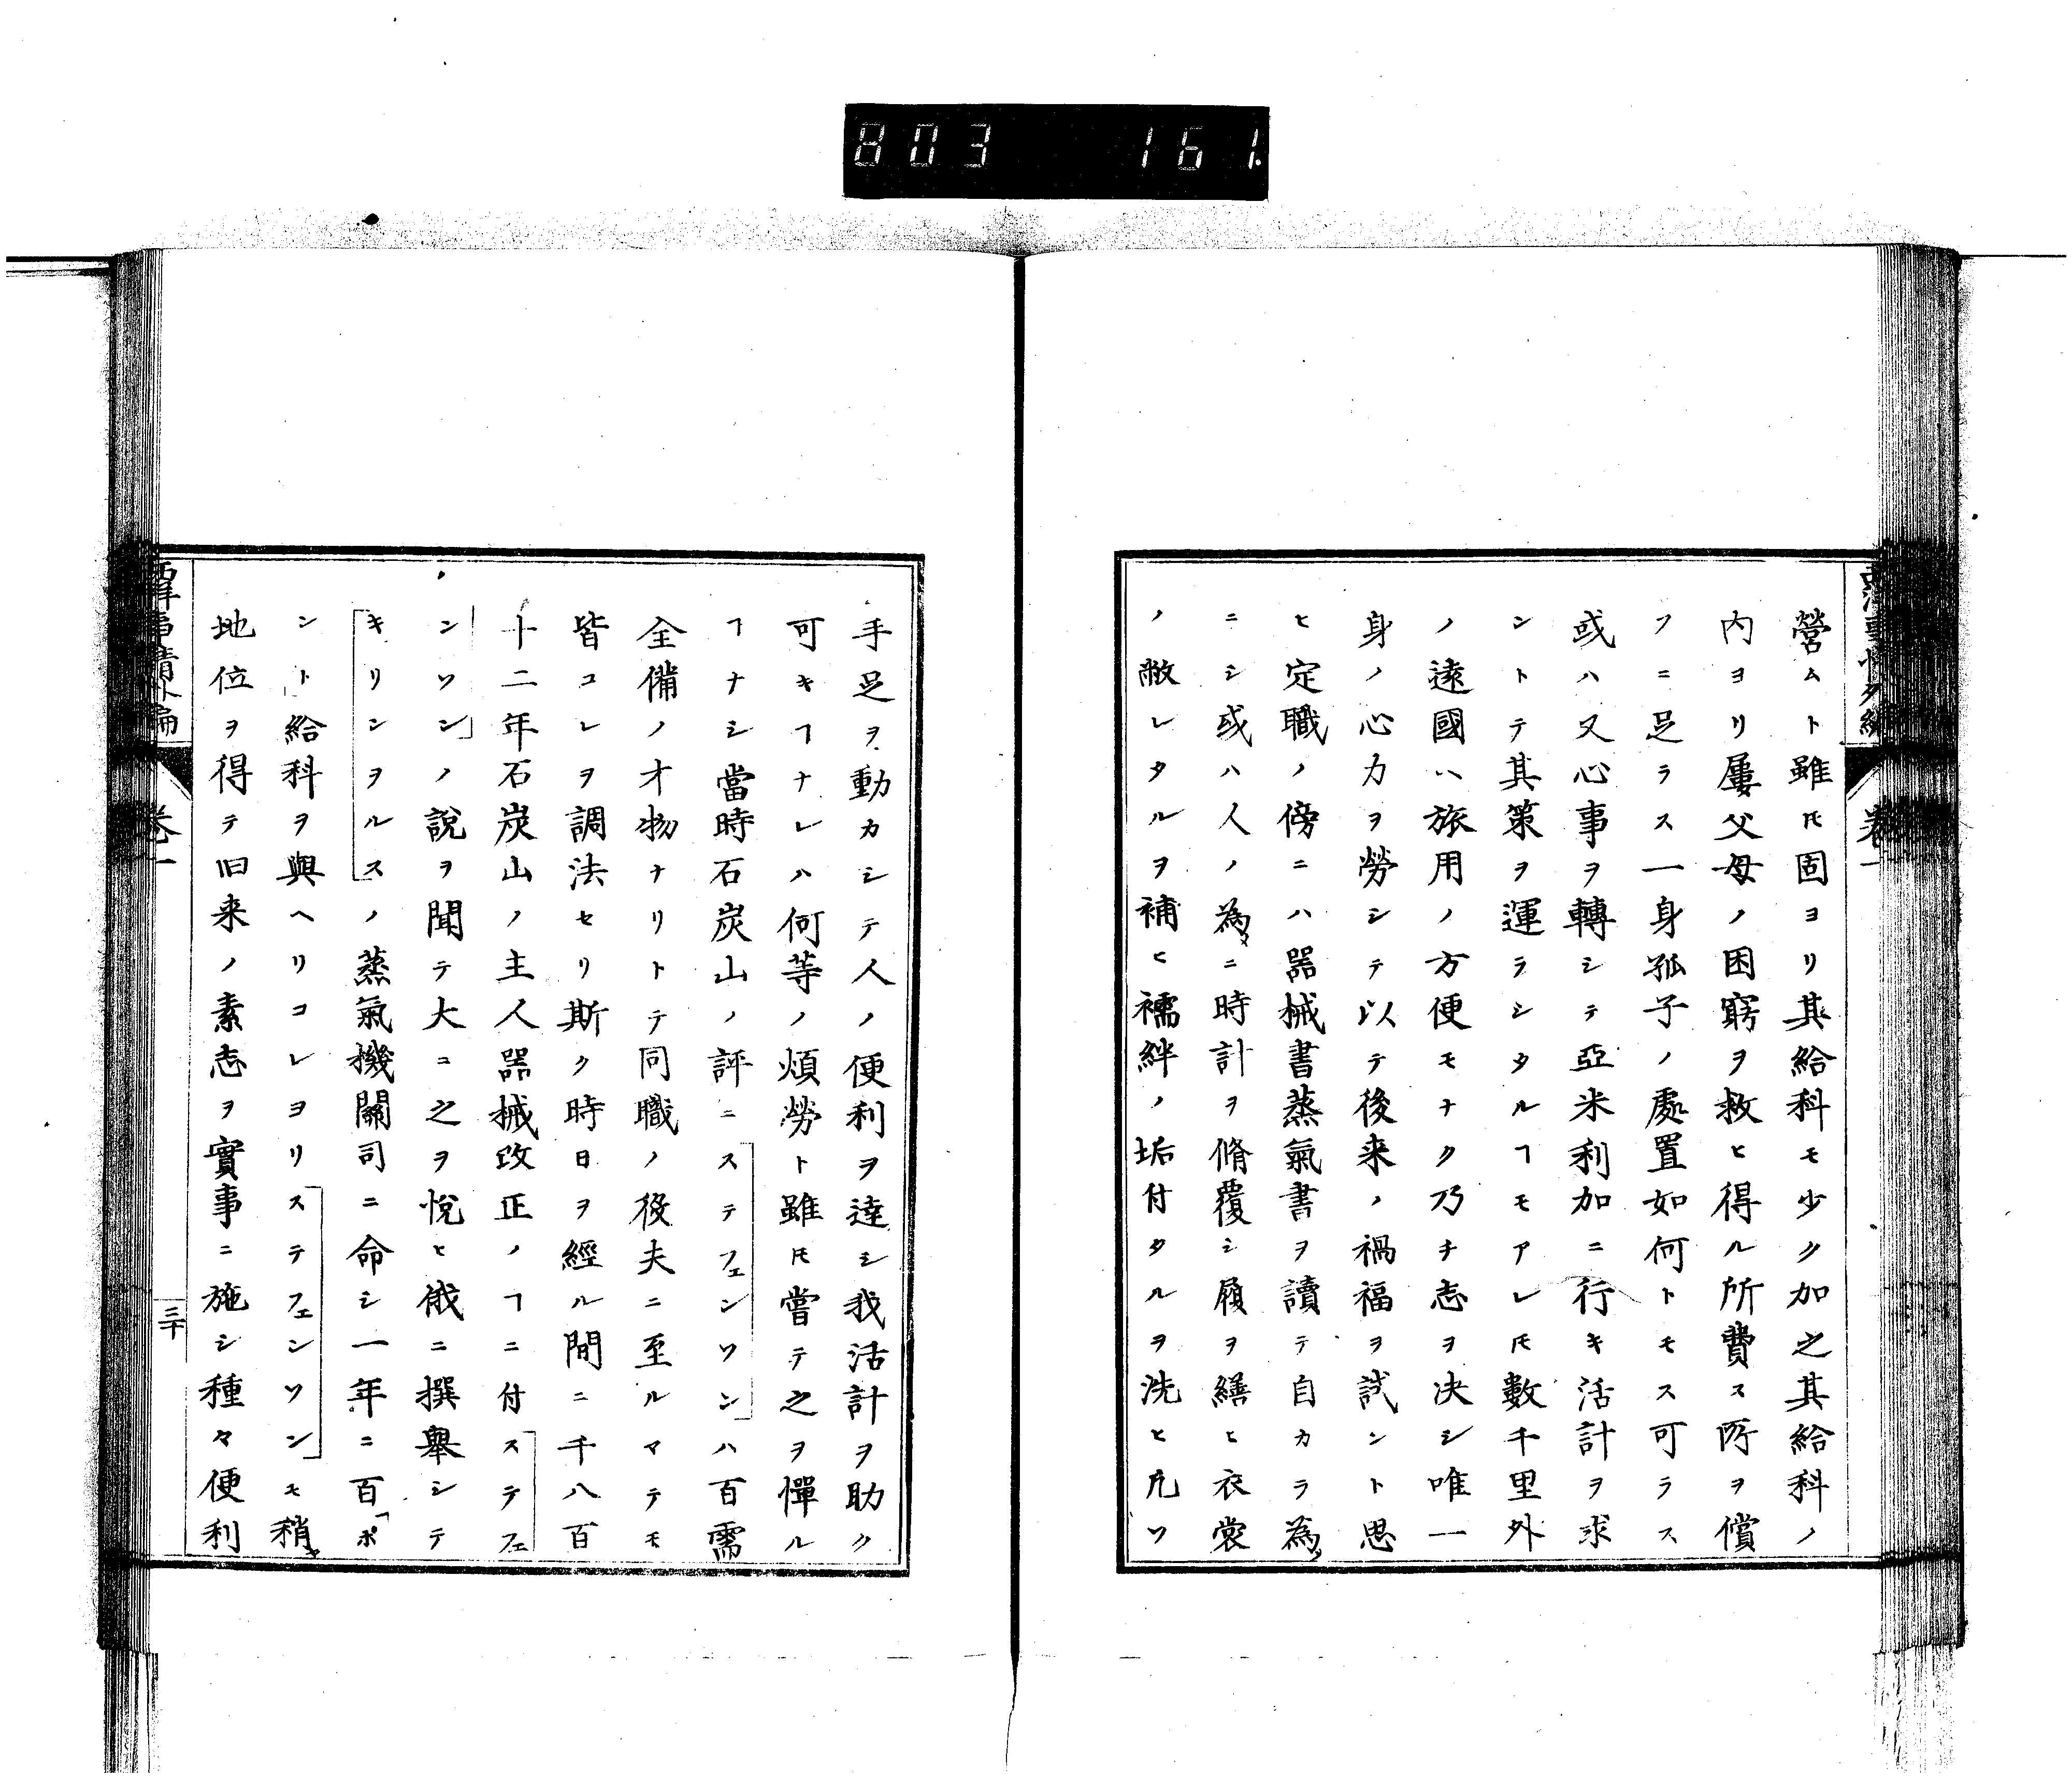 803 161.
西洋事情外編
卷一
營ムト雖𪜈固ヨリ其給料モ少ク加之其給料ノ
内ヨリ屢父母ノ困窮ヲ救ヒ得ル所費ス所ヲ償
フニ足ラス一身孤子ノ處置如何トモス可ラス
或ハ又心事ヲ轉シテ亞米利加ニ行キ活計ヲ求
ントテ其策ヲ運ラシタルヿモアレ𪜈數千里外
ノ遠國ハ旅用ノ方便モナク乃チ志ヲ決シ唯一
身ノ心力ヲ勞シテ以テ後来ノ禍福ヲ試ント思
ヒ定職ノ傍ニハ器械書蒸氣書ヲ讀テ自カラ為メ
ニシ或ハ人ノ為メニ時計ヲ脩覆シ履ヲ繕ヒ衣裳
ノ敝レタルヲ補ヒ襦絆ノ垢付タルヲ洗ヒ凡ソ
手足ヲ動カシテ人ノ便利ヲ達シ我活計ヲ助ク
可キヿナレハ何等ノ煩勞ト雖𪜈嘗テ之ヲ憚ル
ヿナシ當時石炭山ノ評ニ「ステフェンソン」ハ百需
全備ノ才物ナリトテ同職ノ役夫ニ至ルマテモ
皆コレヲ調法セリ斯ク時日ヲ經ル間ニ千八百
十二年石炭山ノ主人器械改正ノヿニ付「ステフェ
ンソン」ノ說ヲ聞テ大ニ之ヲ悅ヒ俄ニ撰舉シテ
「キリンヲルス」ノ蒸氣機關司ニ命シ一年ニ百「ポ
ント」給料ヲ與ヘリコレヨリ「ステフェンソン」モ稍ヤ
地位ヲ得テ旧来ノ素志ヲ實事ニ施シ種々便利
西洋事情外編
卷一
三十